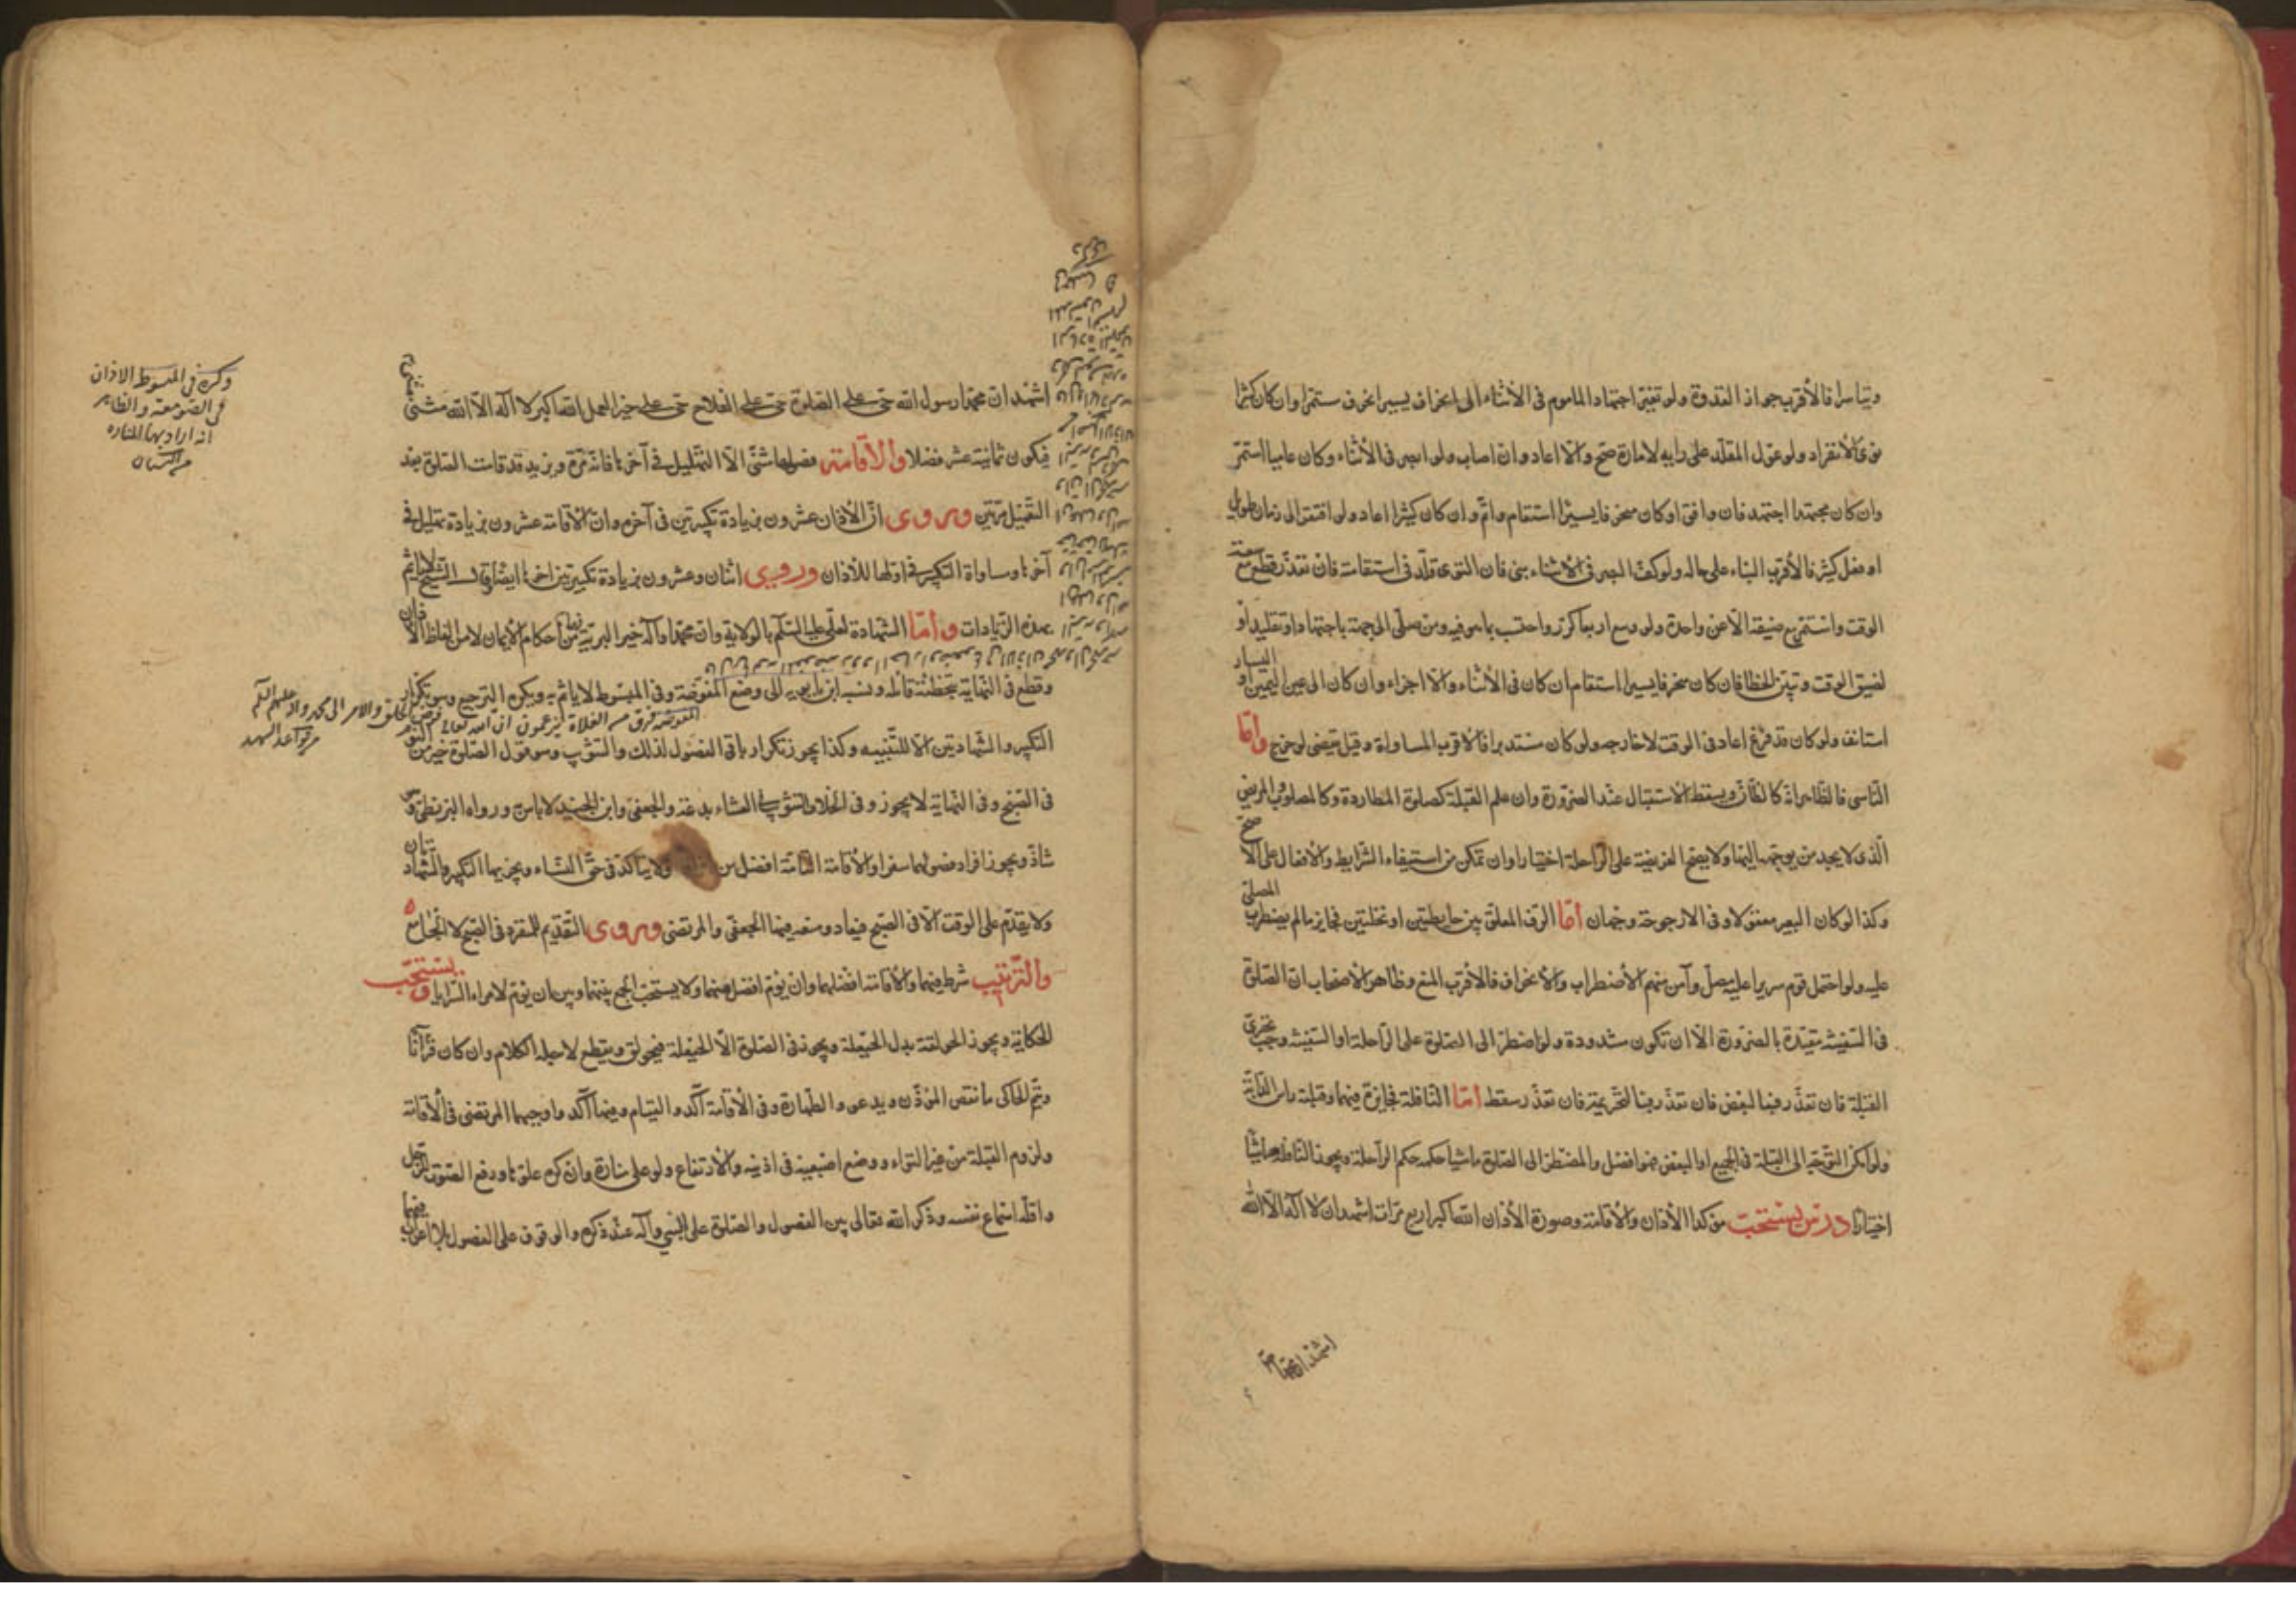 وتياسرا فالأقرب جواز القدوة ولو تغيّر اجتهاد المأموم فى الأثناء الى انحراف يسير انحرف مستمرا وان كان كثيرا
نوى الأنفراد ولو عوّل المقلّد على رايه لامارة صحّ والّا اعاد وان اصاب ولو ابصر فى الأثناء وكان عاميا استمرّ
وان كان مجتهدا اجتهد فان وافق او كان منحرفا يسيرا استقام واتمّ وان كان كثيرا اعاد ولو افتقر الى زمان طويل
او فعل كثير فالأقرب البناء على حاله ولو كفّ البصر فى الأثناء بنى فان التوى قلّد فى استقامته فان تعذّر قطع مع سعة
الوقت واستمر مع ضيقه الّا عن واحدة ولو وسع اربعا كرّر واحتسب بما هو فيه ومن صلّى الى جهة باجتهاد او تقليد او
لضيق الوقت وتبيّن الخطا فان كان منحرفا يسيرا استقام ان كان فى الأثناء والّا اجزاه وان كان الى عين اليمين او اليسار
استانف ولو كان قد فرغ اعاد فى الوقت لا خارجه ولو كان مستدبرا فالأقرب المساواة وقيل يقضى لو خرج وامّا
النّاسى فالظاهر انّه كالظانّ ويسقط الأستقبال عند الضرورة وان علم القبلة كصلوة المطاردة وكالمصلوب والمريض
الّذى لا يجد من يوجّهه اليها ولا يصحّ الفريضة على الراحلة اختيارا وان تمكن من استيفاء الشرايط والأفعال على الأصحّ
وكذا لو كان البعير معقولا وفى الارجوحة وجهان أمّا الرّف المعلّق بين حايطين او نخلتين فجايز ما لم يضطرب المصلى
عليه ولو احتمل قوم سريرا عليه مصلّ وآمن منهم الأضطراب والأنحراف فالأقرب المنع وظاهر الأصحاب ان الصلوة
فى السّفينة مقيّدة بالضرورة الّا ان تكون مشدودة ولو اضطر الى الصلوة على الرّاحلة او السّفينة وجب تحرّى
القبلة فان تعذّر فبالبعض فان تعذّر فبالتحريمة فان تعذّر سقط أمّا النّافلة فجايزة فيهما وقبلته راس الدابّة
ولو امكن التوجّه الى القبلة فى الجميع او البعض فهو افضل والمضطرّ الى الصلوة ماشيا حكمه حكم الراحلة ويجوز النافلة ماشيا
اختيارا درس يستحبّ مؤكدا الأذان والأقامة وصورة الأذان اللّه اكبر اربع مرّات اشهد ان لا اله الّا اللّه
اشهد ان محمّدا
اشهد ان محمّدا رسول اللّه حىّ على الصلوة حىّ على الفلاح حىّ على خير العمل اللّه اكبر لا اله الّا اللّه مثنى مثنى
فيكون ثمانية عشر فصلا والأقامة فصولها مثنّى الّا التّهليل فى آخرها فانّه مرّة ويزيد قد قامت الصلوة بعد
التعميل مرّتين وروى انّ الأذان عشرون بزيادة تكبيرتين فى آخره وان الأقامة عشرون بزيادة تهليل فى
آخرها ومساواة التكبير فى اولها للأذان وروى اثنان وعشرون بزيادة تكبيرتين اخرها ايضا قال الشيخ لا ياثم
بهذه الزّيادات وأمّا الشهادة لعلى عليه السّلم بالولاية وان محمّدا وآله خير البرية فهما من أحكام الأيمان لا من الفاظ الأذان
وقطع فى النّهاية بتخطئة قائله ونسبه ابن بابويه الى وضع المفوّضة وفى المبسوط لا ياثم به ويكره الترجيع وهو تكرار
التكبير والشّهادتين الّا للتّنبيه وكذا يجوز تكرار باقى الفصول لذلك والتثويب وهو قول الصلوة خير من النوم
فى الصّبح وفى النهاية لا يجوز وفى الخلاف التثويب فى العشاء بدعة والجعفى وابن الجنيد لا باس ورواه البزنطى وهو
شاذّ ويجوز افراد فصولهما سفرا والأقامة التّامّة افضل من ولا يتاكّد فى حقّ النّساء ويجزيهما التكبير والشّهادتان
ولا يقدّم على الوقت الّا فى الصّبح فيعاد ومنعه فيها الجعفى والمرتضى وروى التّقديم للمنفرد فى الصّبح لا الجامع
والتّرتيب شرط فيهما والأقامة افضلهما وان يؤمّ افضل منهما ولا يستحبّ الجمع بينهما وبين ان يؤمّ لامراء السّرايا ويستحبّ
الحكاية ويجوز الحولقة بدل الحيّعلة ويجوز فى الصلوة الّا الحيّعلة فيحولق ويقطع لاجله الكلام وان كان قرآنا
ويتمّ الحاكى ما نقص المؤذّن ويدعو والطّهارة وفى الأقامة آكد والقيام وفيها آكد واوجبهما المرتضى فى الأقامة
ولزوم القبلة من غير التواء ووضع اصبعيه فى اذنيه والأرتفاع ولو على منارة وان كره علوّها ورفع الصّوت للرّجل
واقلّه اسماع نفسه وذكر اللّه تعالى بين الفصول والصلوة على النّبى وآله عند ذكره والوقوف على الفصول بلا اعراب فيهما
وكره فى المبسوط الاذان
فى الصومعة والظاهر
انه اراد بها المنارة
المفوضة فرق من الغلاة يزعمون ان اللّه تعالى فوّض الخلق والامر الى محمد وآله عليهم السّلم